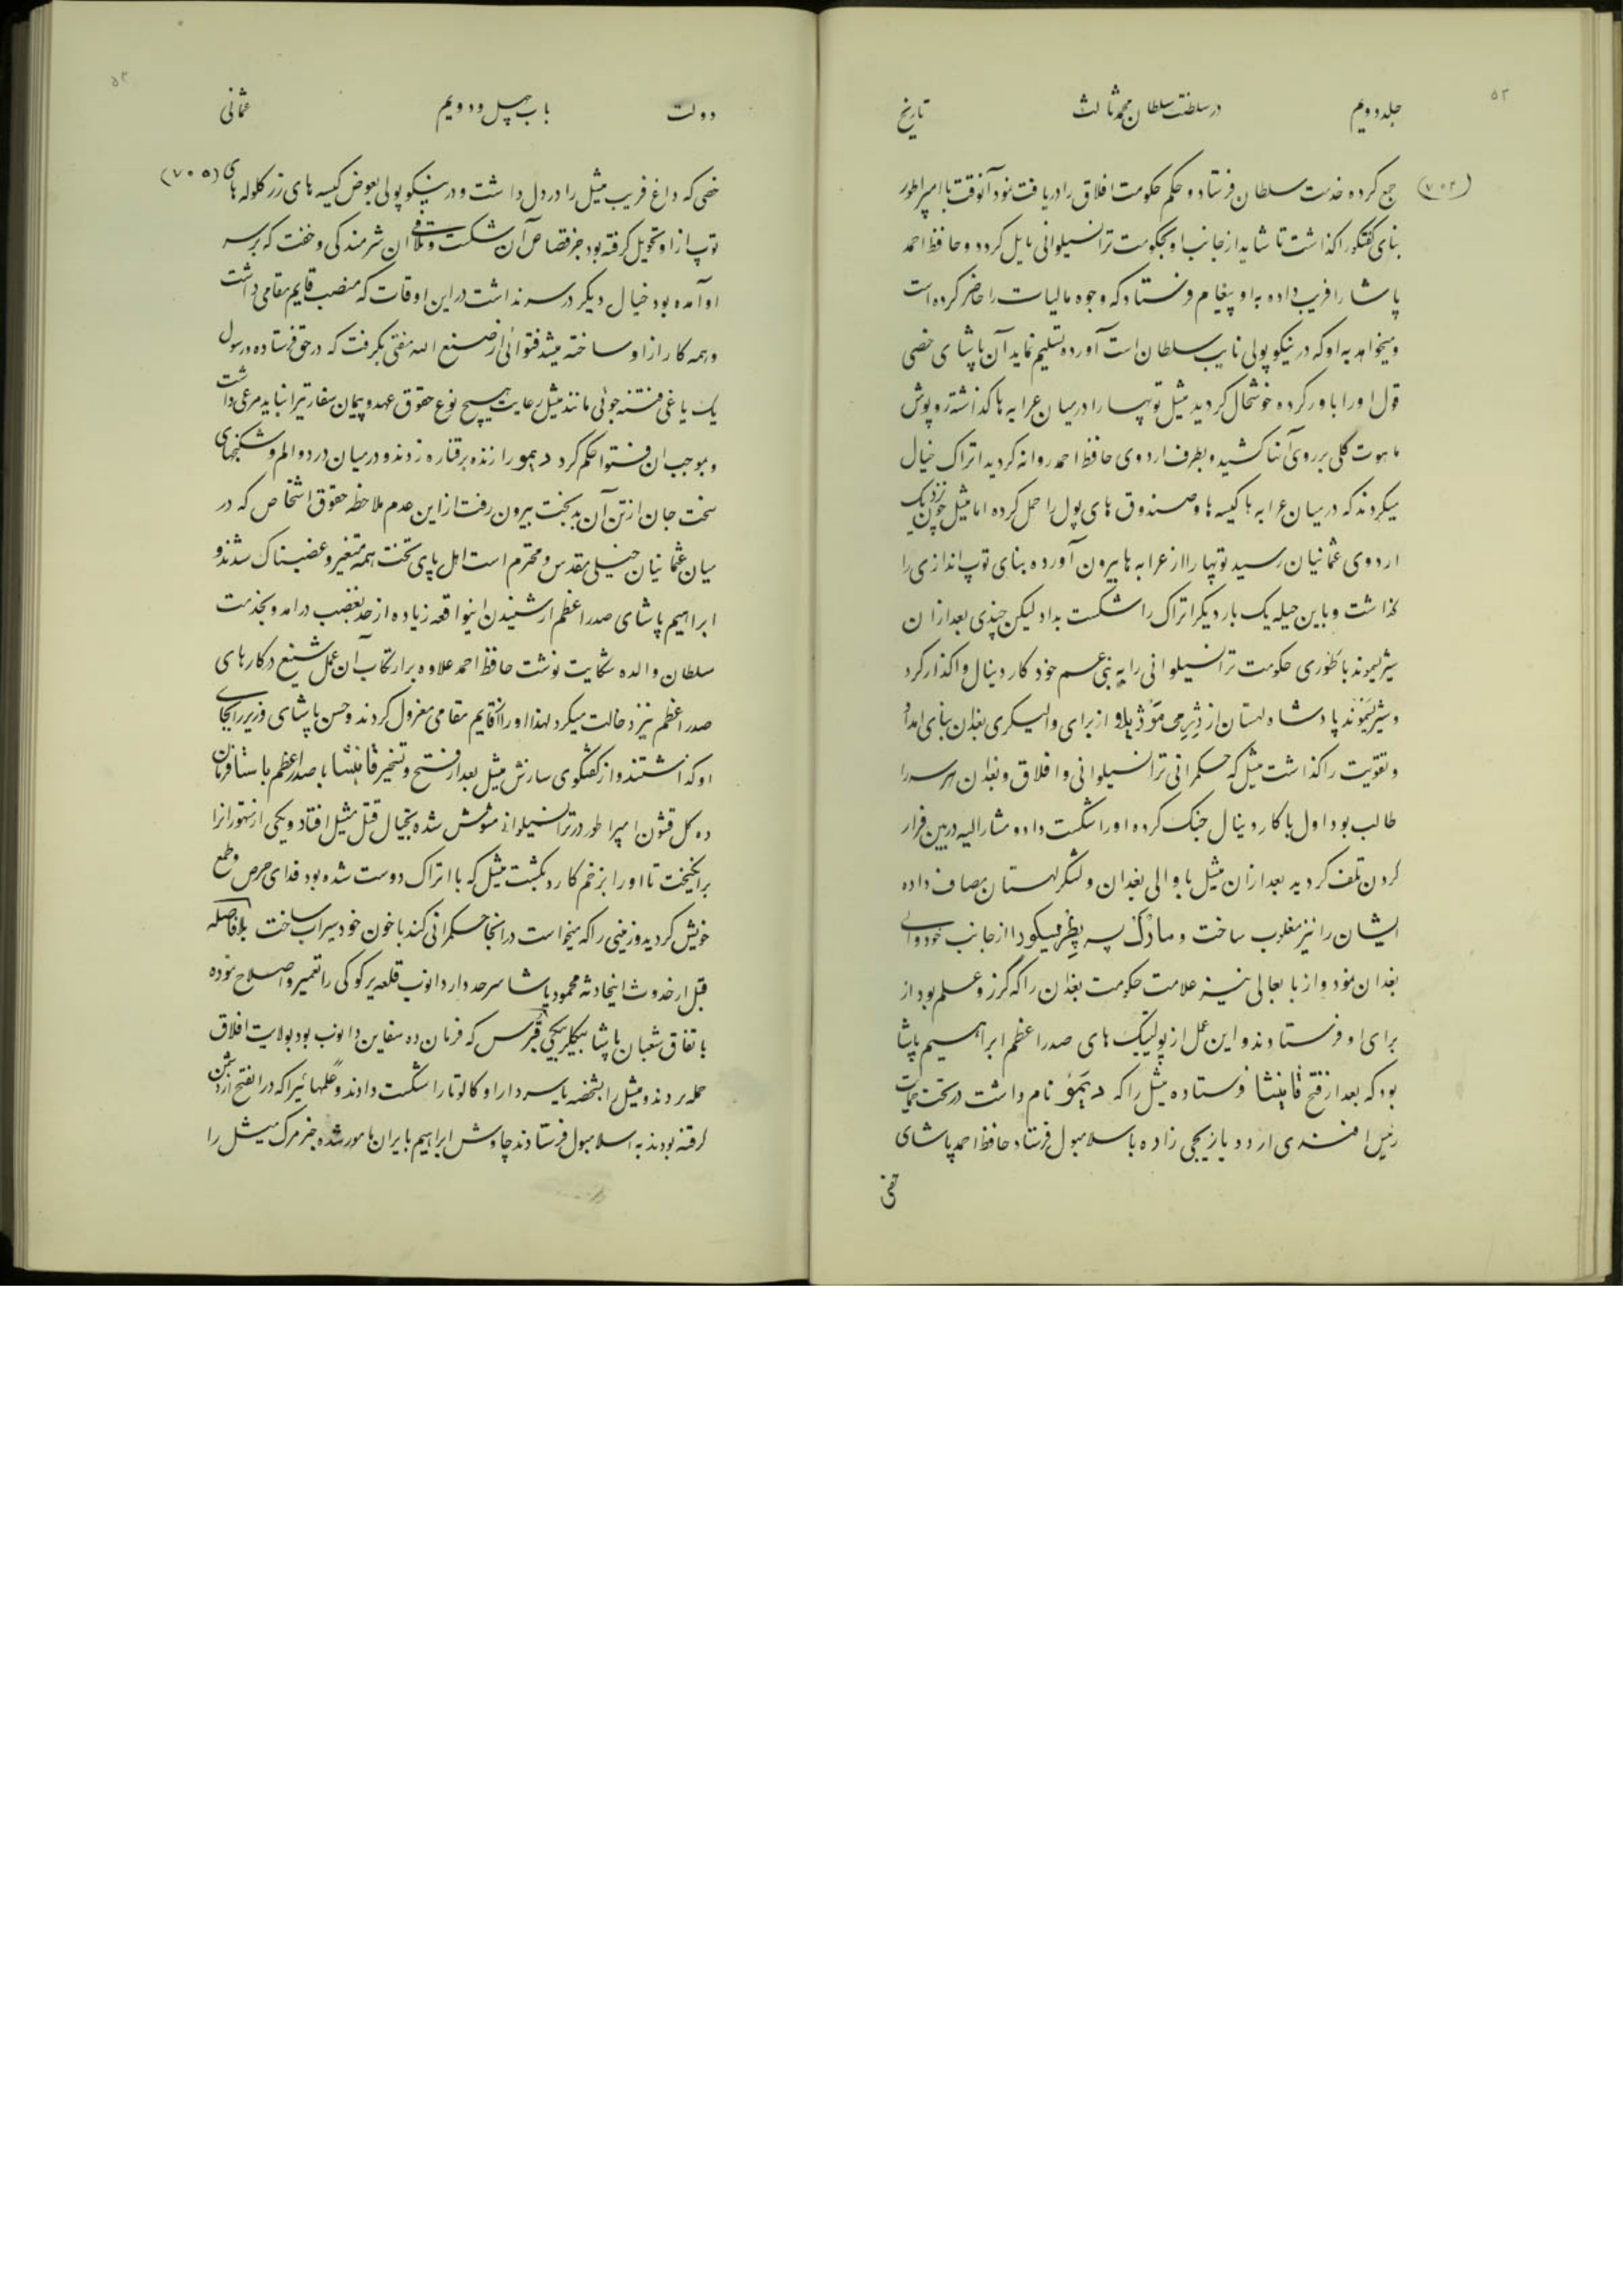 ۵۲
جلد دویم در سلطنت سلطان محمد ثالث تاریخ
(۷۰۴) جمع کرده خدمت سلطان فرستاد و حکم حکومت افلاق را دریافت نمود آنوقت با امپراطور
بنای گفتگو را گذاشت تا شاید از جانب او بحکومت ترانسیلوانی نایل گردد و حافظ احمد
پاشا را فریب داده باو پیغام فرستاد که وجوه مالیات را حاضر کرده است
و میخواهد باو که در نیکوپولی نایب سلطان است آورده تسلیم نماید آن پاشای خصی
قول او را باور کرده خوشحال گردید میشل توپها را در میان عرابه ها گذاشته روپوش
ماهوت گلی بر روی آنها کشیده بطرف اردوی حافظ احمد روانه گردید اتراک خیال
میکردند که در میان عرابه ها کیسه ها و صندوق های پول را حمل کرده اما میشل چون نزدیک
اردوی عثمانیان رسید توپها را از عرابه ها بیرون آورده بنای توپ اندازی را
گذاشت و باین حیله یک بار دیگر اتراک را شکست بداد لیکن چندی بعد از آن
سیژیسموند باطوری حکومت ترانسیلوانی را به بنی عم خود کاردینال واگذار کرد
و سیژیسموند پادشاه لهستان از ژرمی موویلاو از برای والیگری بغدان بنای امداد
و تقویت را گذاشت میشل که حکمرانی ترانسیلوانی و افلاق و بغدان هر سه را
طالب بود اول با کاردینال جنگ کرده او را شکست داد و مشارالیه در بین فرار
کردن تلف گردید بعد از آن میشل با والی بغدان و لشگر لهستان مصاف داده
ایشان را نیز مغلوب ساخت و مارک پسر پطر میکو را از جانب خود والی
بغدان نمود و از بابعالی نیز علامت حکومت بغدان را که گرز و علم بود از
برای او فرستادند و این عمل از پولتیک های صدر اعظم ابراهیم پاشا
بود که بعد از فتح قانیشا فرستاده میشل را که دیمو نام داشت در تحت حمایت
رئیس افندی اردو یازیجی زاده باسلامبول فرستاد حافظ احمد پاشای
خصی
۵۳
دولت باب چهل و دویم عثمانی
خصی که داغ فریب میشل را در دل داشت و در نیکوپولی بعوض کیسه های زر گلوله های (۷۰۵)
توپ از او تحویل گرفته بود جز قصاص آن شکست و تلافی آن شرمندگی و خفت که بر سر
او آمده بود خیال دیگر در سر نداشت در این اوقات که منصب قایم مقامی داشت
و همه کار از او ساخته میشد فتوائی از صنع الله مفتی بگرفت که در حق فرستاده و رسول
یک یاغی فتنه جوئی مانند میشل رعایت هیچ نوع حقوق عهد و پیمان سفارتیرا نباید مرعی داشت
و بموجب آن فتوا حکم کرد دیمو را زنده بر قناره زدند و در میان درد و الم و شکنجهای
سخت جان از تن آن بدبخت بیرون رفت از این عدم ملاحظه حقوق اشخاص که در
میان عثمانیان خیلی مقدس و محترم است اهل پای تخت همه متغیر و غضبناک شدند و
ابراهیم پاشای صدر اعظم از شنیدن اینواقعه زیاده از حد بغضب درامد و بخدمت
سلطان والده شکایت نوشت حافظ احمد علاوه بر ارتکاب آن عمل شنیع در کارهای
صدر اعظم نیز دخالت میکرد لهذا او را از قایم مقامی معزول کردند و حسن پاشای وزیر را بجای
او گذاشتند و از گفتگوی سازش میشل بعد از فتح و تسخیر قانیشا با صدر اعظم باستا فرمان
ده کل قشون امپراطور در ترانسیلوانی مشوش شده بخیال قتل میشل افتاد و یکی از نهورانرا
برانگیخت تا او را بزخم کارد بکشت میشل که با اتراک دوست شده بود فدای حرص و طمع
خویش گردید و زمینی را که میخواست در انجا حکمرانی کند با خون خود سیراب ساخت بلافاصله
قبل از حدوث اینحادثه محمود پاشا سرحد دار دانوب قلعه یرکوکی را تعمیر و اصلاح نموده
باتفاق شعبان پاشا بیگلربیگی قبرس که فرمان ده سفاین دانوب بود بولایت افلاق
حمله بردند و میشل را بشخصه یا سردار او کالوتا را شکست دادند و علمهائیرا که در انفتح از دشمن
گرفته بودند به اسلامبول فرستادند چاوش ابراهیم بایران مامور شده خبر مرگ میشل را